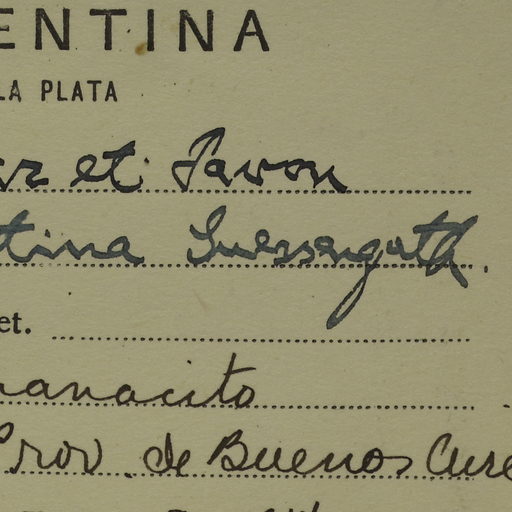 ENTINA
LA PLATA
et Pavon
tina Suessenguth.
et.
anacito
Prov. de Buenos Aire